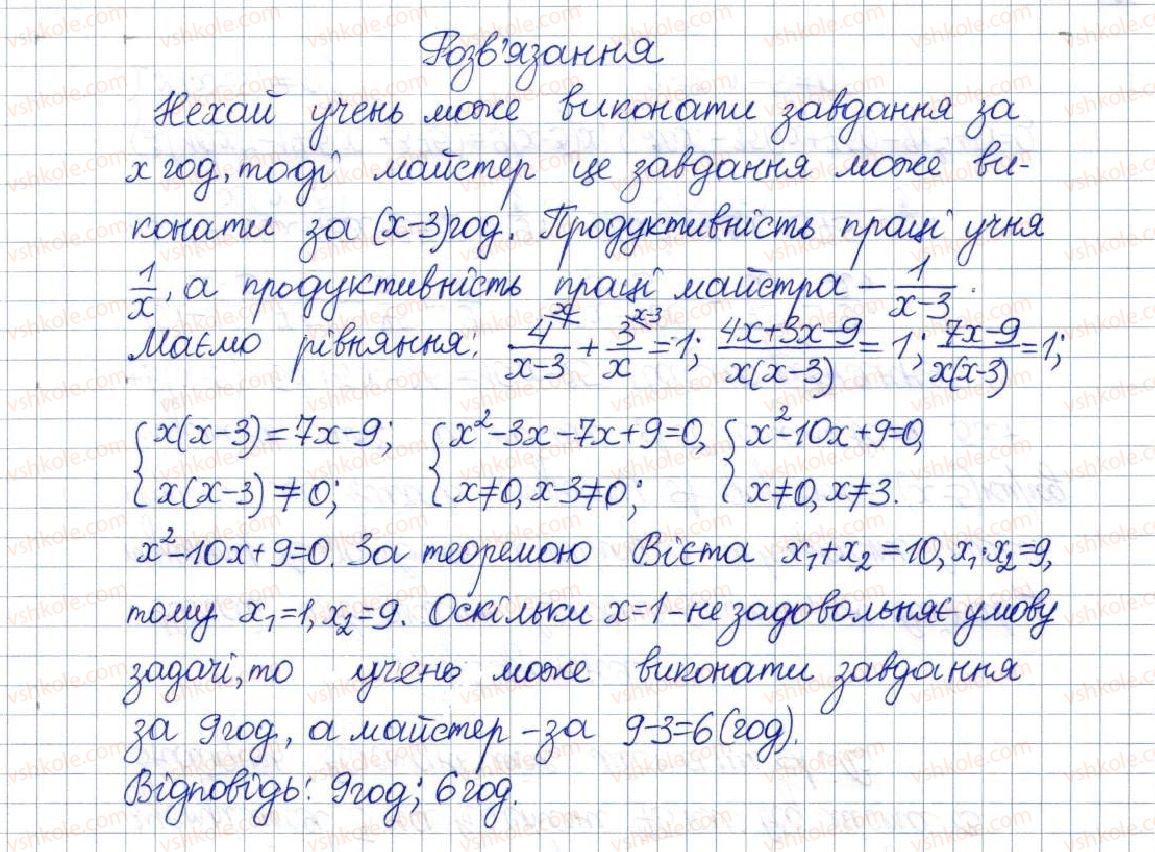 Розв'язання
Нехай учень може виконати завдання за
x год, тоді майстер це завдання може ви-
конати за (x-3)год. Продуктивність праці учня
1/x, а продуктивність праці майстра – 1/(x-3).
Маємо рівняння: 4/(x-3) + 3/x = 1; (4x+3x-9)/(x(x-3)) = 1; (7x-9)/(x(x-3)) = 1;
{ x(x-3)=7x-9; { x²-3x-7x+9=0, { x²-10x+9=0,
x(x-3)≠0; x≠0, x-3≠0; x≠0, x≠3.
x²-10x+9=0. За теоремою Вієта x₁+x₂=10, x₁·x₂=9,
тому x₁=1, x₂=9. Оскільки x=1 – не задовольняє умову
задачі, то учень може виконати завдання
за 9 год, а майстер – за 9-3=6 (год).
Відповідь: 9 год; 6 год.